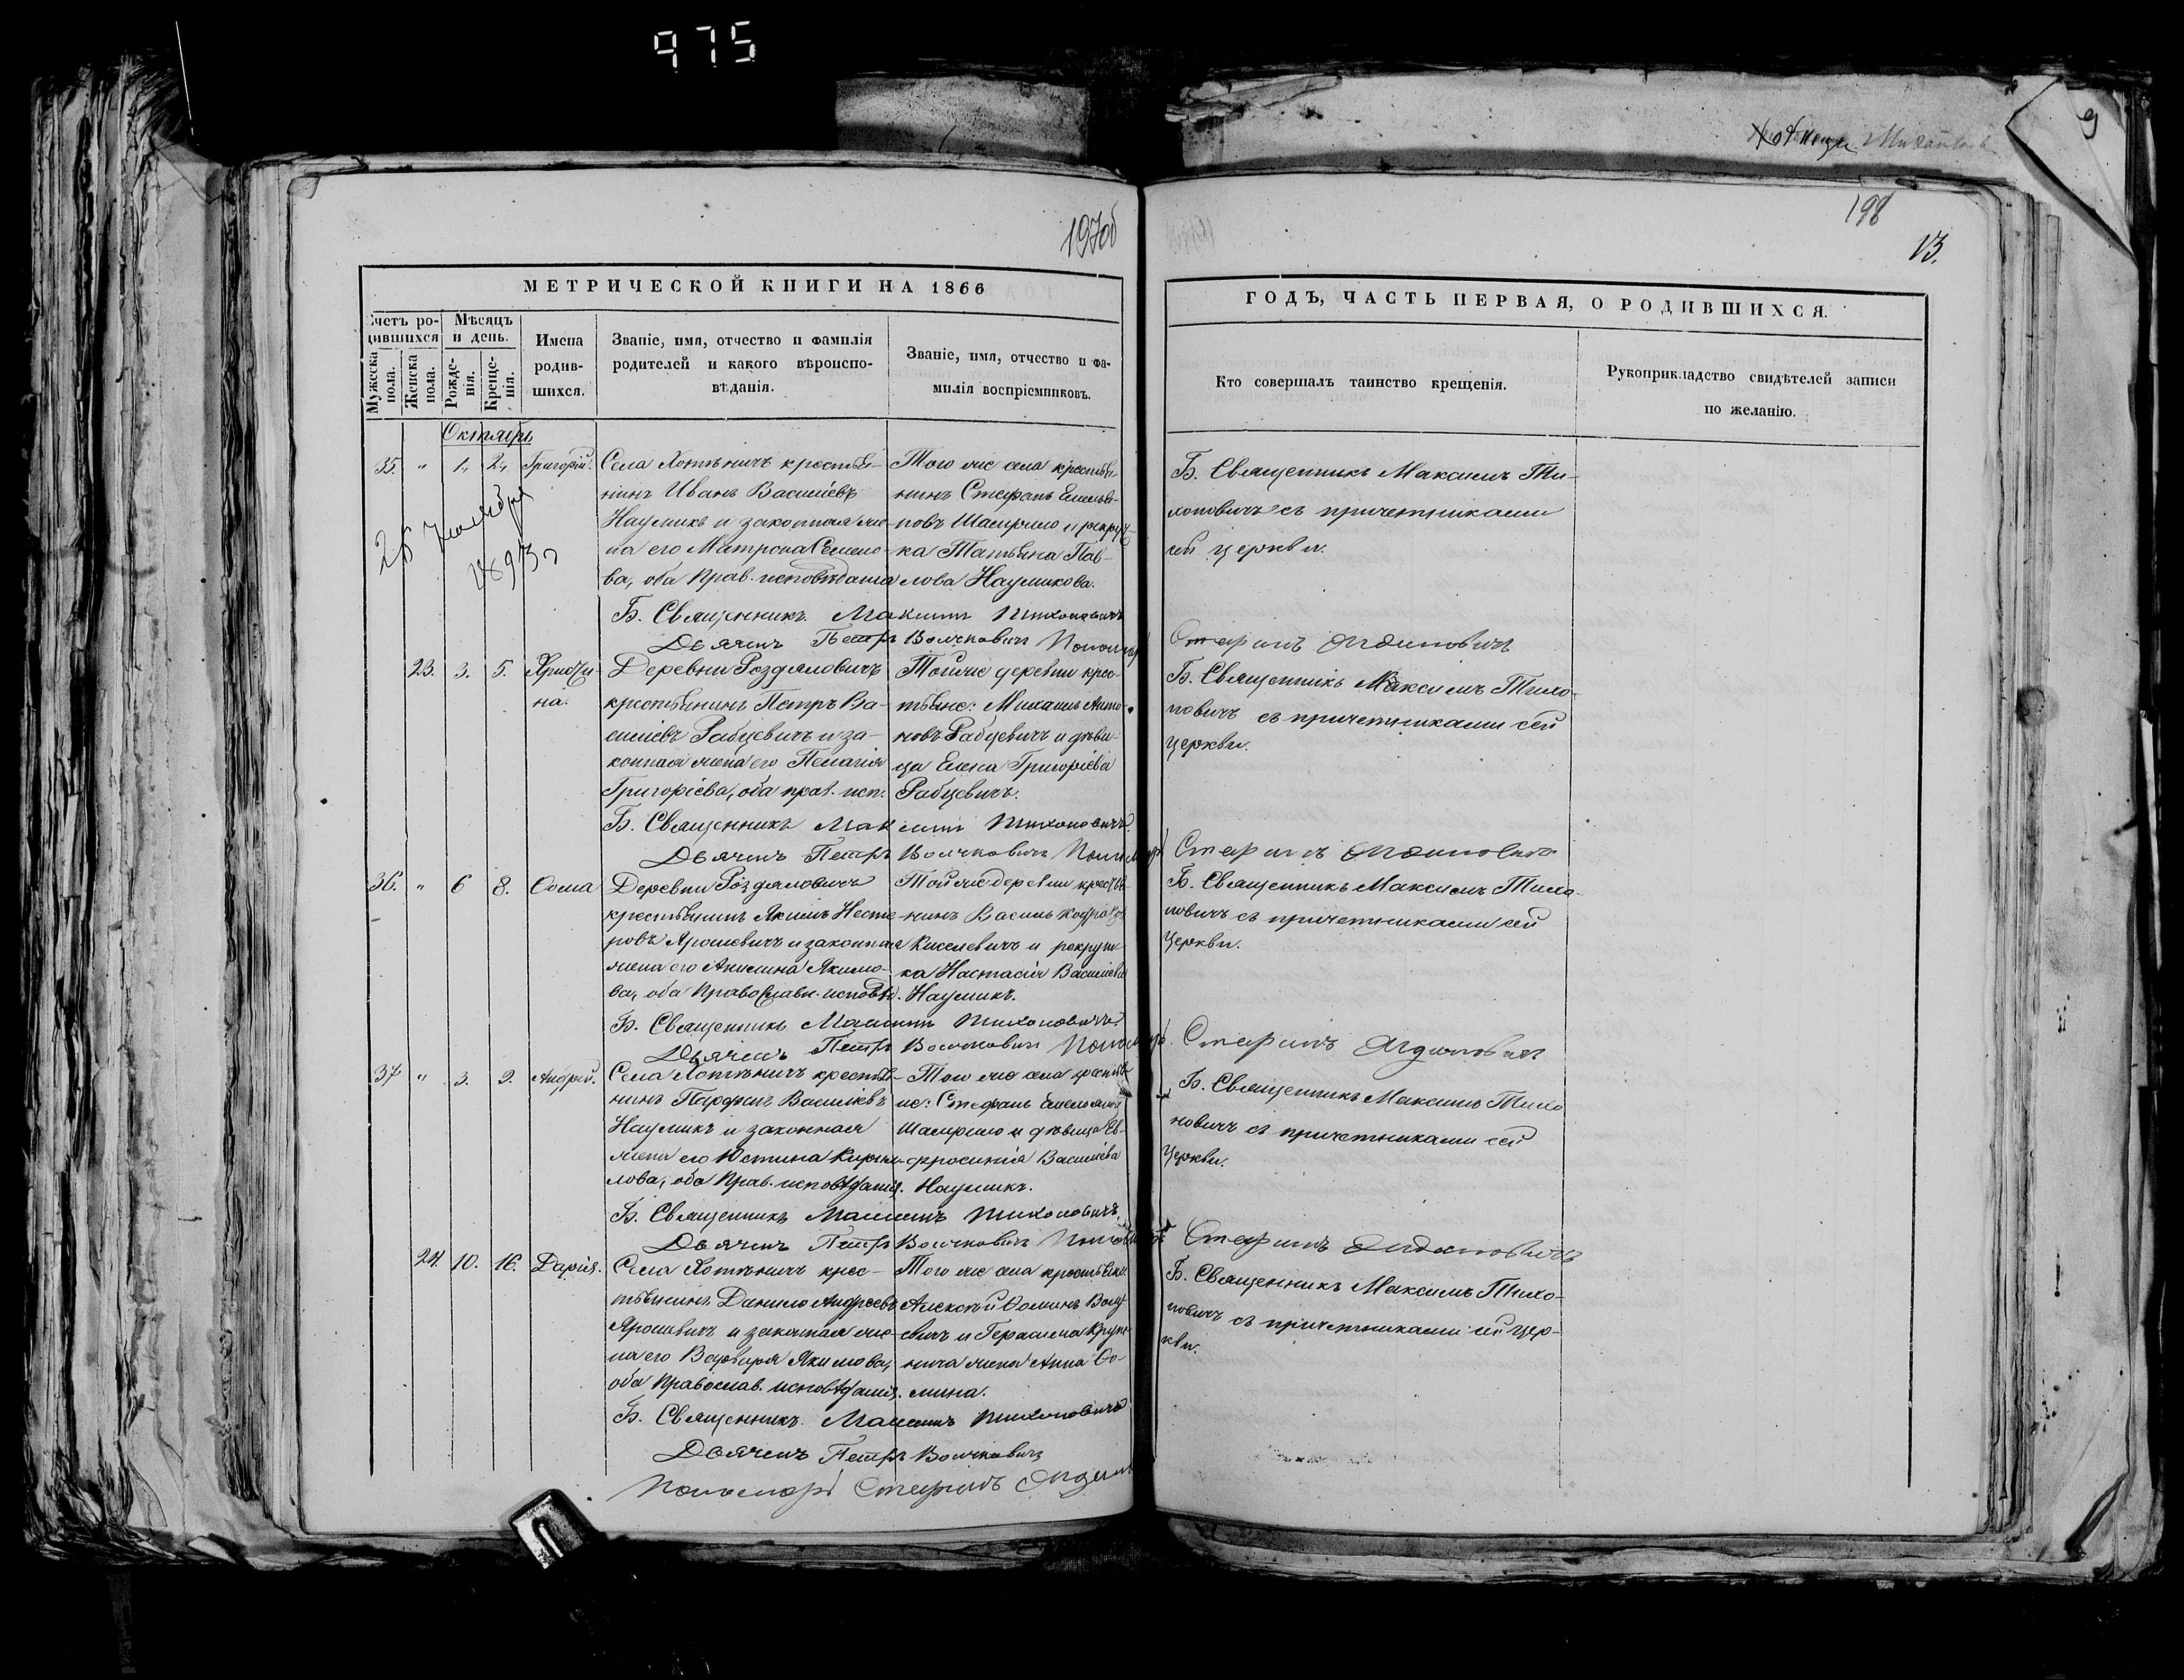 975
9
197об
198
13.
МЕТРИЧЕСКОЙ КНИГИ НА 1866
ГОДЪ, ЧАСТЬ ПЕРВАЯ, О РОДИВШИХСЯ.
Счетъ родившихся
Мужеска пола.
Женска пола.
Мѣсяцъ и день.
Рожденія.
Крещенія.
Имена родившихся.
Званіе, имя, отчество и фамилія
родителей и какого вѣроиспо-
вѣданія.
Званіе, имя, отчество и фа-
милія воспріемниковъ.
Кто совершалъ таинство крещенія.
Рукоприкладство свидѣтелей записи
по желанію.
Октябрь
35. " 1. 2. Григорій.
Села Хотѣничъ крестья-
нинъ Иванъ Васильевъ
Наумикъ и законная же-
на его Матрона Семено-
ва, оба Прав. исповѣданія
Того же села крестья-
нинъ Стефанъ Емелья-
новъ Шамрило и рекрут-
ка Татьяна Пав-
лова Наумикова.
Б. Священникъ Максимъ Ти-
хоновичъ съ причетниками
сей церкви.
1893
Б. Священникъ Максимъ Тихоновичъ
Дьячекъ Петръ Волчковичъ Пономарь
Стефанъ
23. 3. 5. Христи-
на.
Деревни Роздяловичъ
крестьянинъ Петръ Ва-
сильевъ Рабцевичъ и за-
конная жена его Пелагія
Григоріева, оба прав. исп.
Той же деревни крес-
тьяне: Михаилъ Анто-
новъ Рабцевичъ и дѣви-
ца Елена Григоріева
Рабцевичъ.
Б. Священникъ Максимъ Тихо-
новичъ съ причетниками сей
церкви.
Б. Священникъ Максимъ Тихоновичъ
Дьячекъ Петръ Волчковичъ Пономарь
Стефанъ
36. " 6 8. Ѳома
Деревни Роздяловичъ
крестьянинъ Якимъ Несте-
ровъ Ярошевичъ и законная
жена его Акилина Якимо-
ва, оба Православн. исповѣд.
Той же деревни крестья-
нинъ Василь
Киселевичъ и рекрут-
ка Настасія Васильева
Наумикъ.
Б. Священникъ Максимъ Тихо-
новичъ съ причетниками сей
Церкви.
Б. Священникъ Максимъ Тихоновичъ
Дьячекъ Петръ Волчковичъ Пономарь
Стефанъ
37 " 3. 9. Андрей.
Села Хотѣничъ крестья-
нинъ Парфенъ Васильевъ
Наумикъ и законная
жена его Юстина Кирил-
лова, оба Прав. исповѣданія.
Того же села крестья-
не: Стефанъ Емельяновъ
Шамрило и дѣвица Ев-
фросинія Васильева
Наумикъ.
Б. Священникъ Максимъ Тихо-
новичъ съ причетниками сей
Церкви.
Б. Священникъ Максимъ Тихоновичъ
Дьячекъ Петръ Волчковичъ Пономарь
Стефанъ
24. 10. 16. Дарія.
Села Хотѣничъ крес-
тьянинъ Данило Андреевъ
Ярошевичъ и законная же-
на его Варвара Якимова,
оба Православ. исповѣданія.
Того же села крестьяне
Алексѣй Ѳоминъ
и Герасима
жена Анна Ѳо-
мина.
Б. Священникъ Максимъ Тихо-
новичъ съ причетниками сей цер-
кви.
Б. Священникъ Максимъ Тихоновичъ
Дьячекъ Петръ Волчковичъ
Пономарь Стефанъ